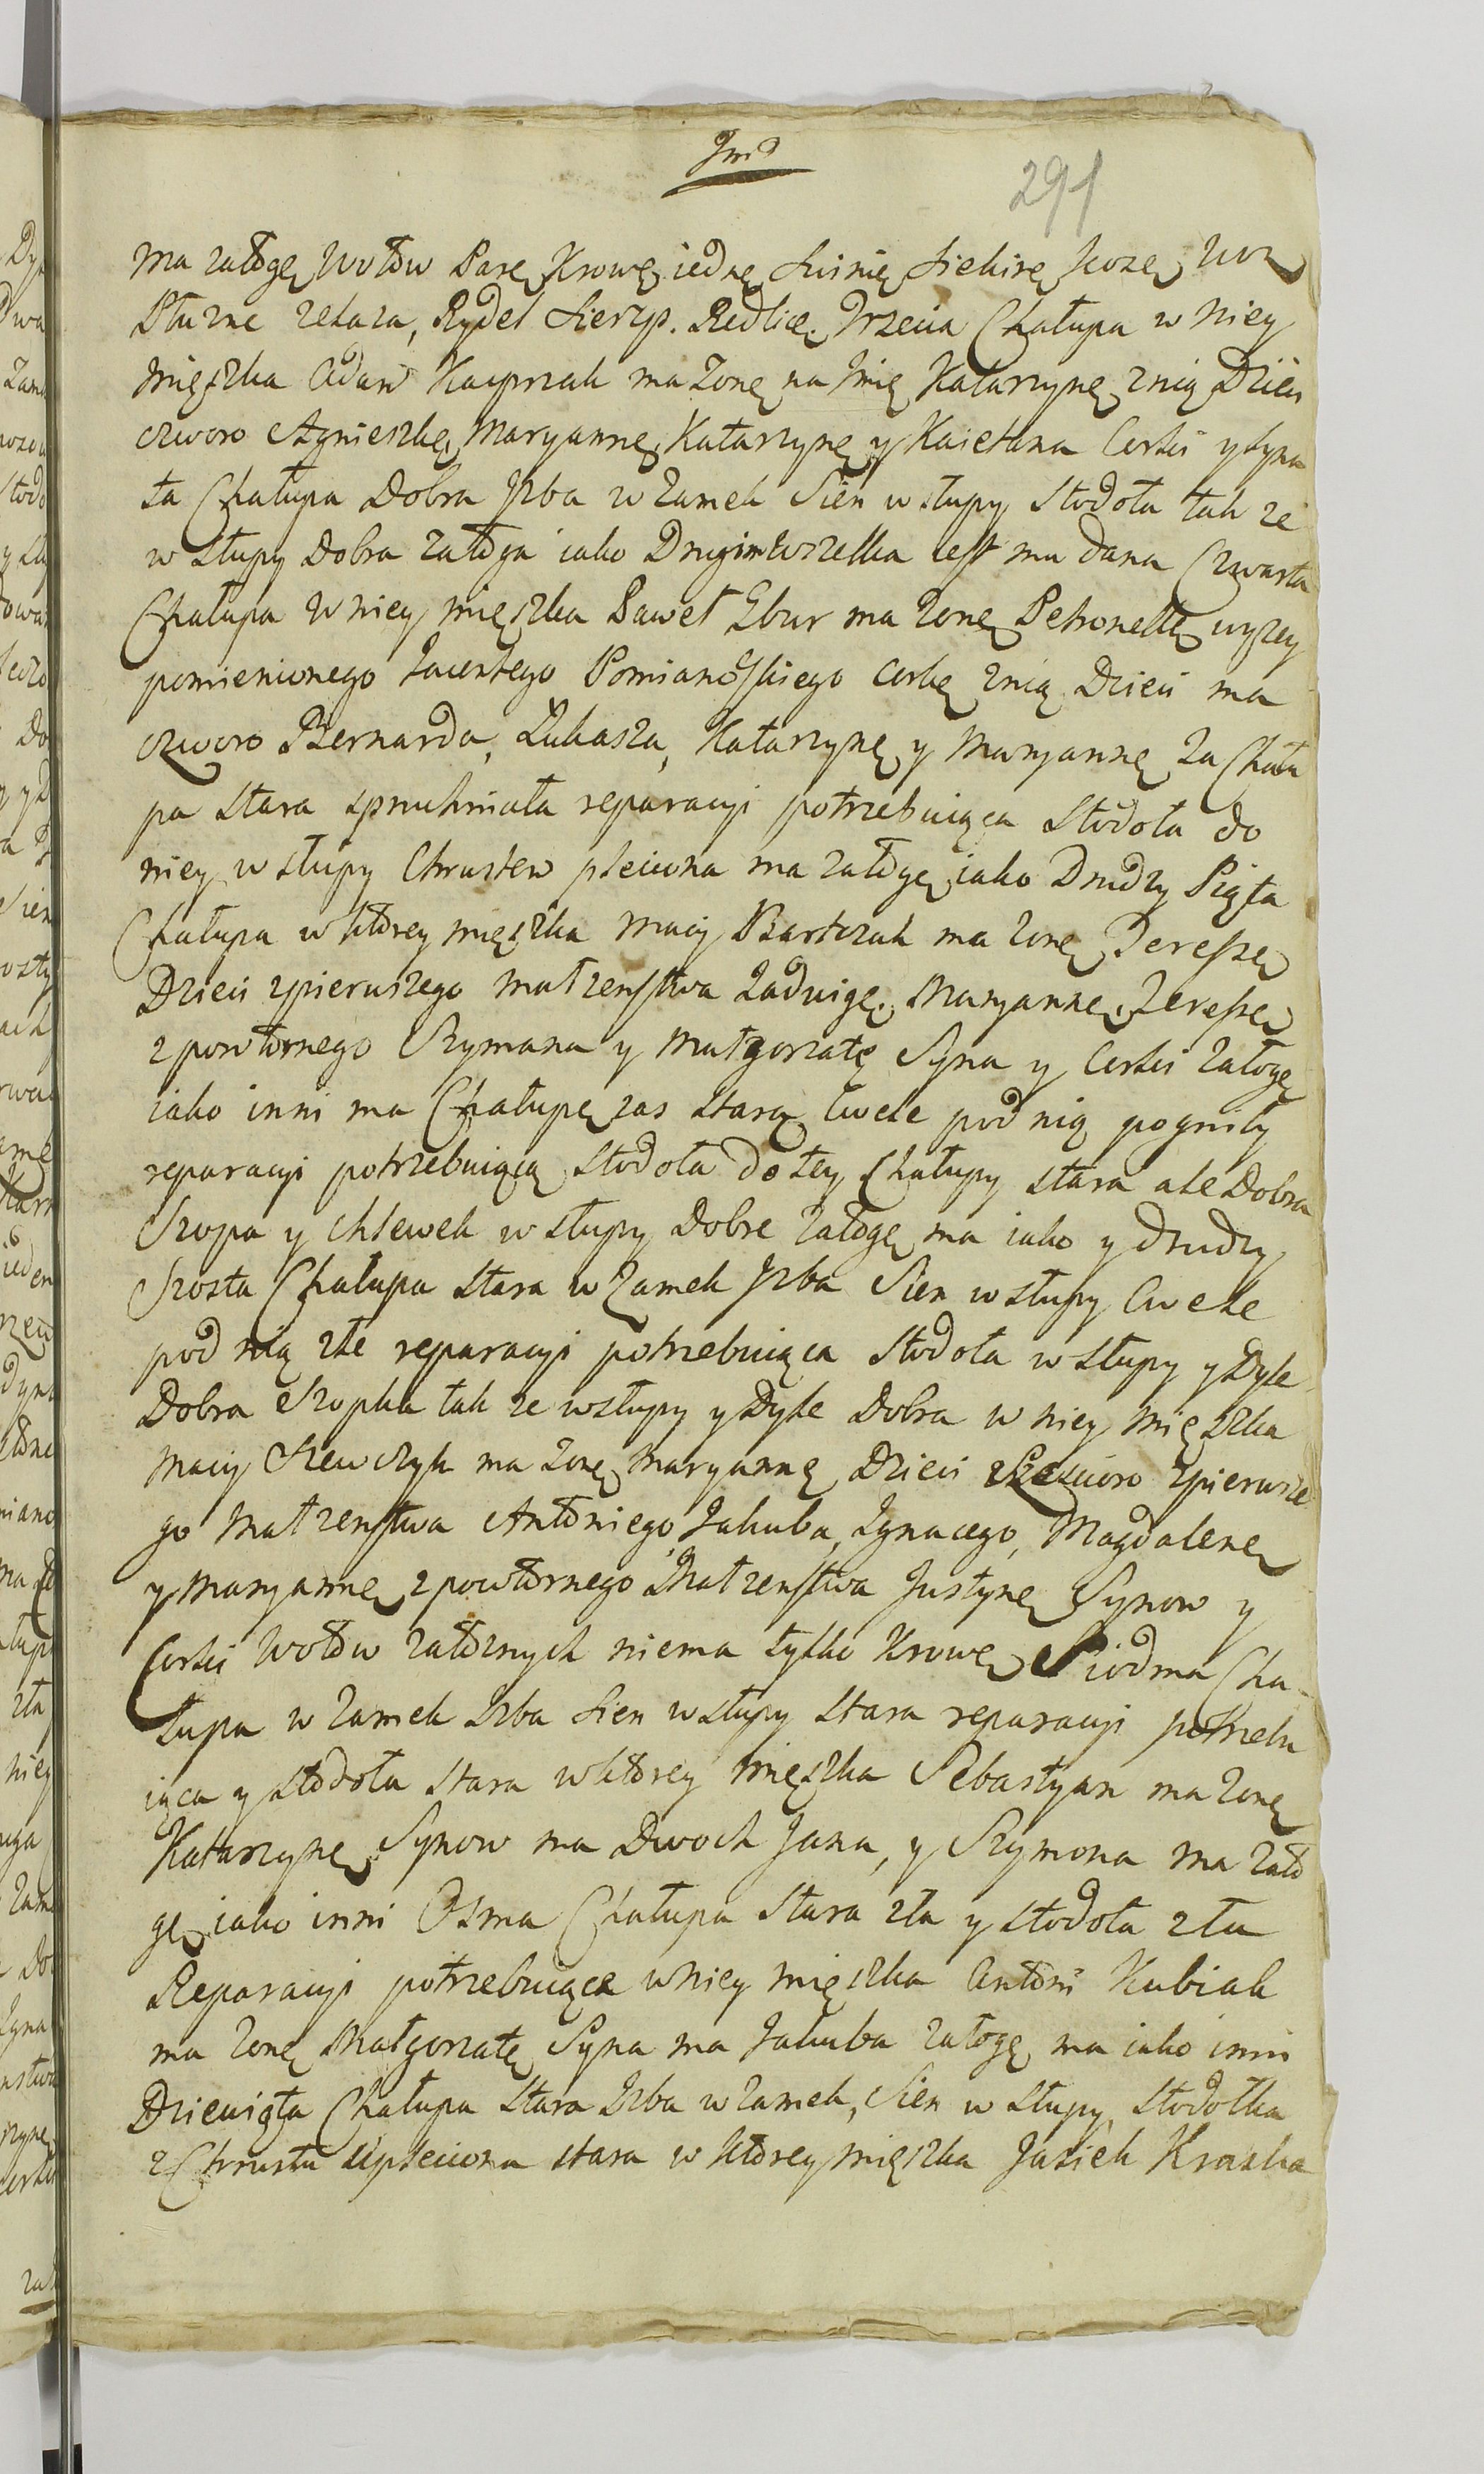 Jmd
291
ma załogę wołow Parę Krowę iednę Swinię Siekirę Kozę woz
Płuzne zelaza, Rydel Sierzp. Redlicę. Trzecia Chałupa w niey
mięszka Adam Kacprzak ma zonę na Jmię Katarzynę znią Dzieci
czworo Agnieszkę, Maryannę, Katarzynę y Kaietana Corki y Syna
ta Chałupa Dobra Jzba w zamek Sien w słupy Stodoła tak ze
w słupy Dobra załoga iako Drugim wszelka iest mu dana Czwarta
Chałupa w niey mięszka Paweł Gbur ma zonę Petronellę wyzey
pomienionego Pomianoskiego Corkę znią Dzieci ma
czworo Bernarda, Łukasza, Katarzynę y Maryannę ta Chału
pa stara spruchniała reparacyi potrzebuiąca Stodoła do
niey w słupy Chrustem pleciona ma załogę iako Drudzy Piąta
Chałupa w ktorey mięszka Maciy Bartczak ma zonę Teressę
Dzieci zpierwszego małzenstwa Jadwigę. Maryannę. Teressę
z powtornego Szymana y Małgorzatę Syna y Corki załogę
iako inni ma Chałupę zas starą Cwele pod nią pogniły
reparacyi potrzebuiącą Stodoła do tey Chałupy stara ale Dobra
Szopa y chlewek w słupy Dobre załogę ma iako y drudzy
Szosta Chałupa stara w zamek Jzba Sien w słupy Cwele
pod nią złe reparacyi potrzebuiąca Stodoła w słupy y Dyle
Dobra Szopka tak ze w słupy y Dyle Dobra w niey mięszka
Maciy Szewczyk ma zonę Maryannę Dzieci Szescioro zpierwsze
go Małzenstwa Antoniego, Jakuba, Jgnacego, Magdalenę
y Maryannę z powtornego Małzenstwa Justynę Synow y
Corki wołow załoznych niema tylko Krowę Siodma Cha-
łupa w zamek Jzba Sien w słupy stara reparacyi potrzebu
iąca y stodoła stara w ktorey mięszka Sebastyan ma zonę
Katarzynę Synow ma Dwoch Jana, y Szymona ma zało
gę iako inni Osma Chałupa stara zła y stodoła zła
Reparacyi potrzebuiąca w niey mięszka Antoni Kubiak
ma zonę Małgorzatę Syna ma Jakuba załogę ma iako inni
Dziewiąta Chałupa stara Jzba w zamek, Sien w słupy, Stodołka
z Chrustu upleciona stara w ktorey mięszka Jasiek Kraska